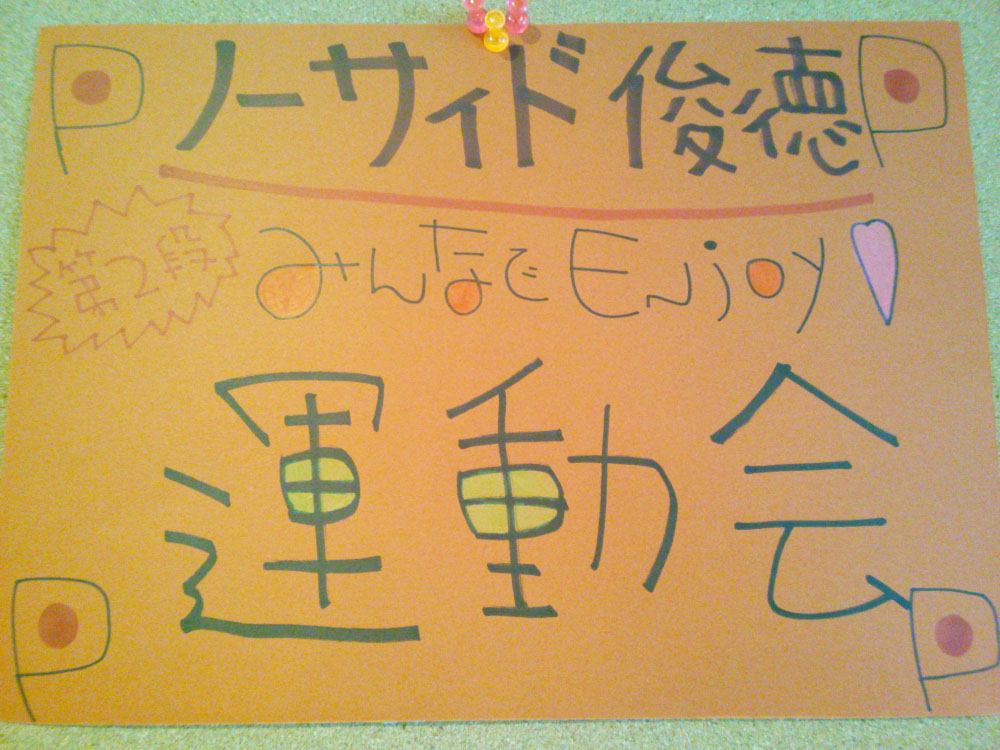 ノーサイド俊徳
第2段
みんなでEnjoy!
運動会